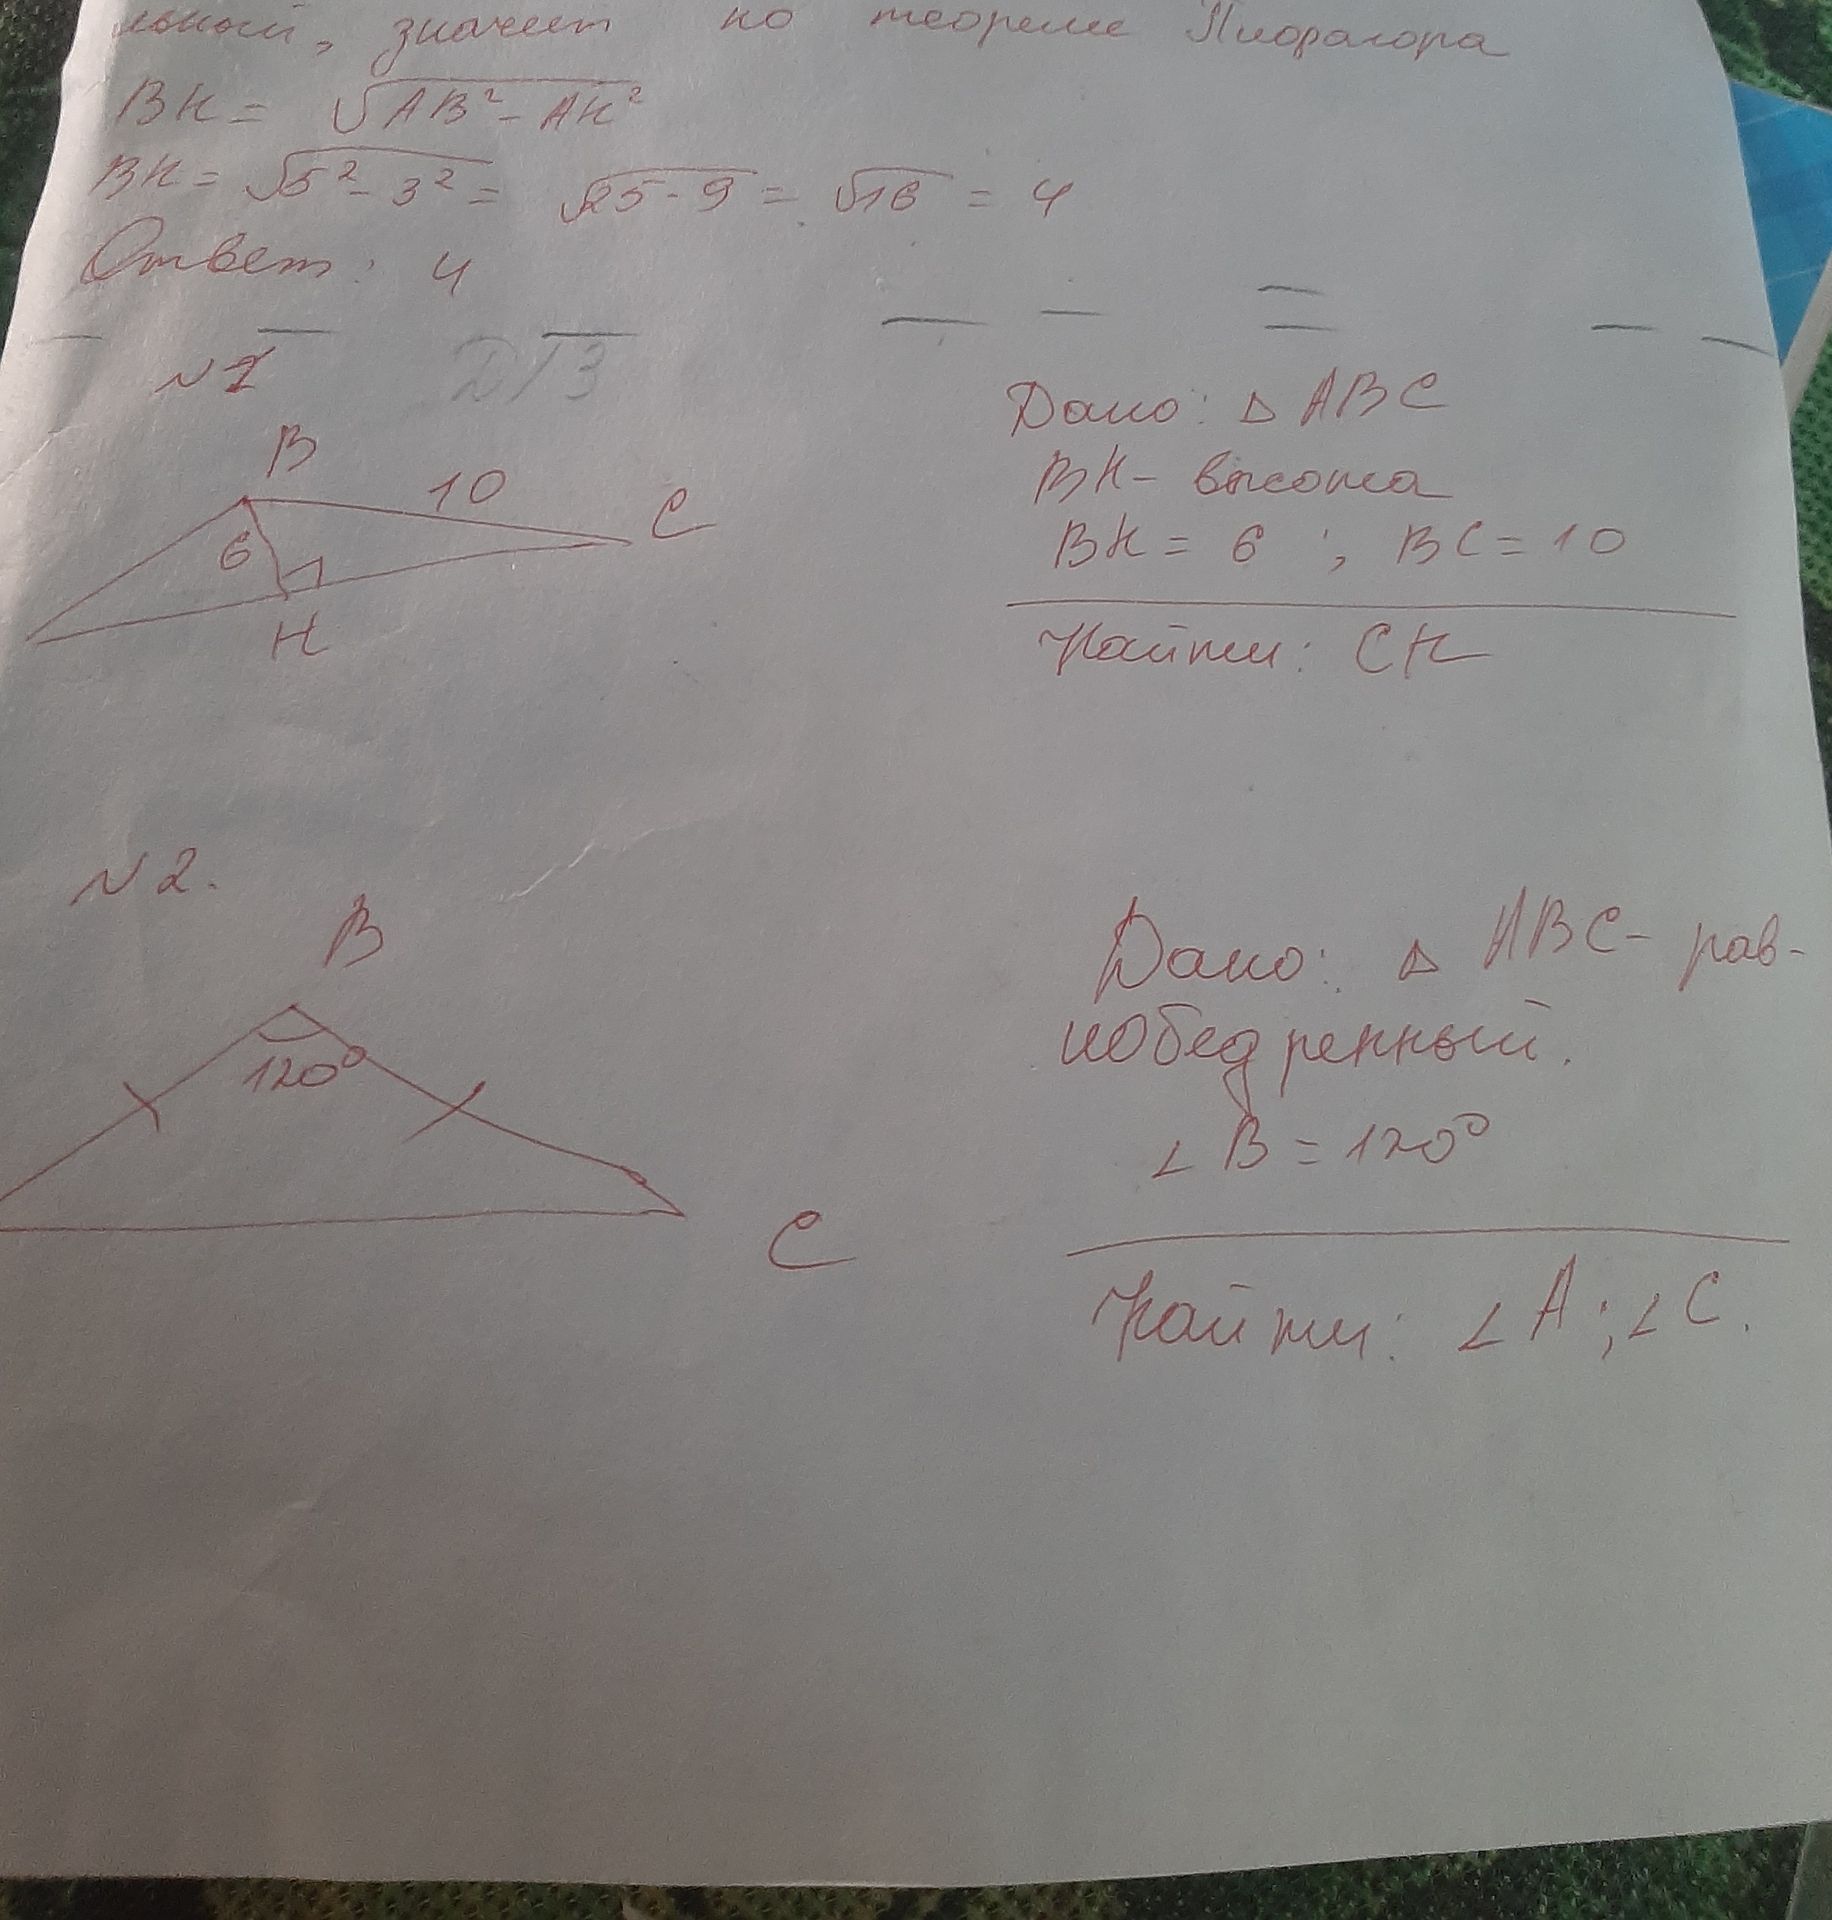 льный, значит по теореме Пифагора
BH = √AB² - AH²
BH = √5² - 3² = √25 - 9 = √16 = 4
Ответ: 4
N 1 Д/З
B
10
C
6
H
Дано: △ ABC
BH - высота
BH = 6 ; BC = 10
Найти: CH
N 2.
B
120°
C
Дано: △ ABC - рав-
нобедренный.
∠ B = 120°
Найти: ∠ A ; ∠ C.